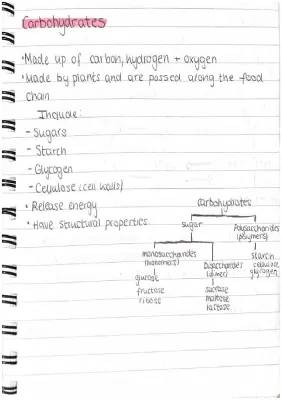 Carbohydrates
• Made up of carbon, hydrogen + oxygen
• Made by plants and are passed along the food
chain
Include:
- Sugars
- Starch
- Glycogen
- Cellulose (cell walls)
• Release energy
• Have structural properties
carbohydrates
sugar
Polysaccharides
(polymers)
monosaccharides
(monomers)
Disaccharides
(dimer)
starch
cellulose
glycogen
glucose
fructose
ribose
sucrose
maltose
lactose